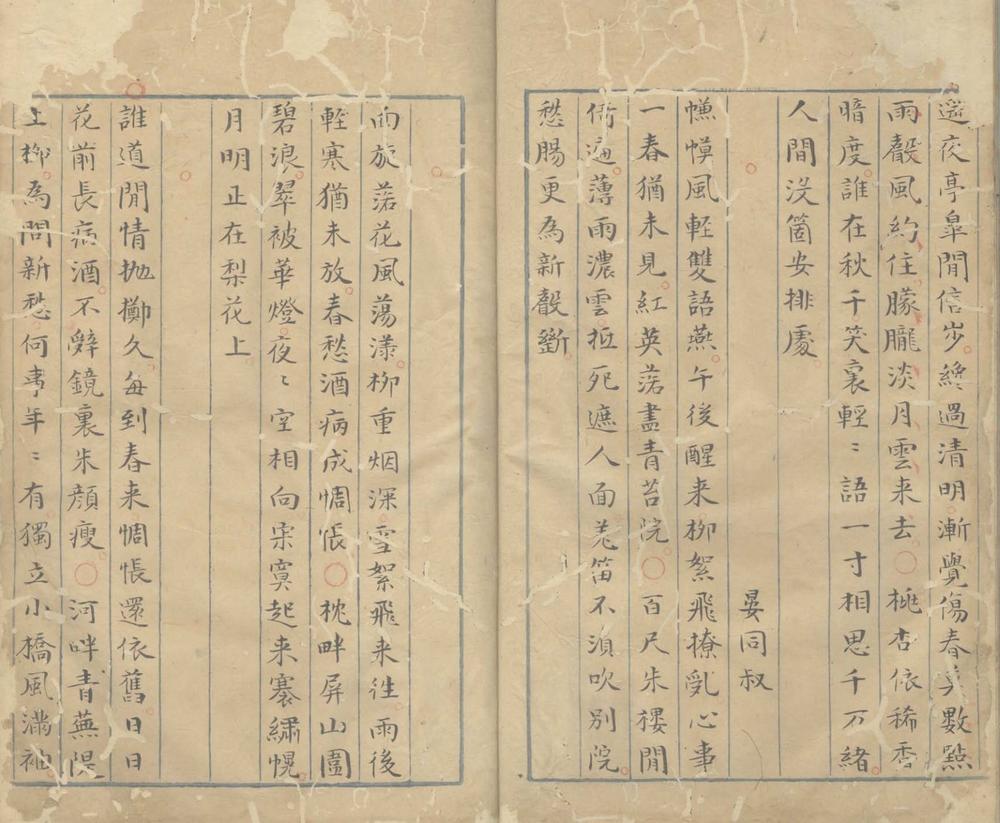 遥夜亭皐閒信步纔過清明漸覺傷春莫數點
雨聲風約住朦朧淡月雲来去〇桃杏依稀香
暗度誰在秋千笑裏輕〻語一寸相思千万緒
人間没箇安排處
晏同叔
幙幙風軽雙語燕午後醒来柳絮飛撩乱心事
一春猶未見紅英落盡青苔院〇百尺朱樓閒
倚遍薄雨濃雲抵死遮人面羌笛不湏吹别院
愁腸更為新聲斷
雨旋落花風蕩漾柳重烟深雪絮飛来徃雨後
軽寒猶未放春愁酒病成惆悵〇枕畔屏山圍
碧浪翠被華燈夜〻空相向寂寞起来褰繡幌
月明正在梨花上
誰道閒情抛擲久每到春来惆悵還依舊日日
花前長病酒不辤鏡裏朱顔瘦〇河畔青蕪隄
上栁為問新愁何事年〻有獨立小橋風滿袖